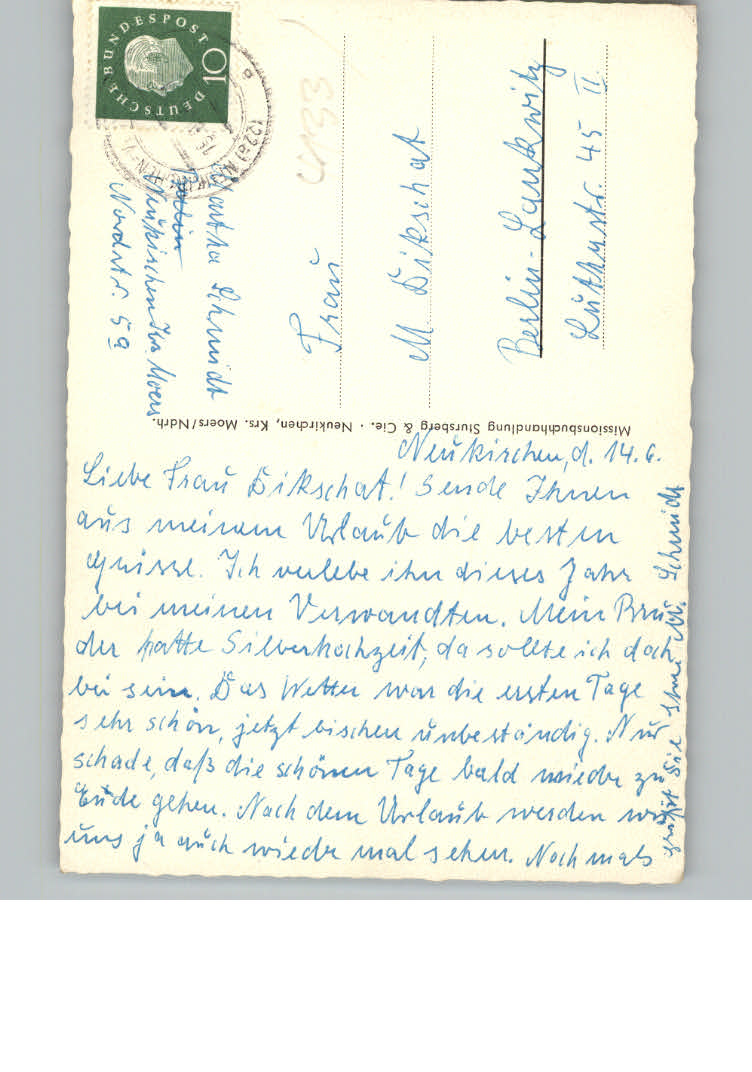 DEUTSCHE BUNDESPOST
10
(22a) NEUKIRCHEN
Martha Schmidt
Berlin
Neukirchen Krs Moers
Nordstr. 59
Frau
M. Dikschat
Berlin-Lankwitz
Luthastr. 45 II
Missionsbuchhandlung Stursberg & Cie. · Neukirchen, Krs. Moers/Ndrh.
Neukirchen, d. 14.6.
Liebe Frau Dikschat! Sende Ihnen
aus meinem Urlaub die besten
Grüsse. Ich verlebe ihn dieses Jahr
bei meinen Verwandten. Mein Bru-
der hatte Silberhochzeit, da sollte ich doch
bei sein. Das Wetter war die ersten Tage
sehr schön, jetzt bischen unbeständig. Nur
schade, daß die schönen Tage bald wieder zu
Ende gehen. Nach dem Urlaub werden wir
uns ja auch wieder mal sehen. Nochmals
grüßt Sie Ihre M. Schmidt